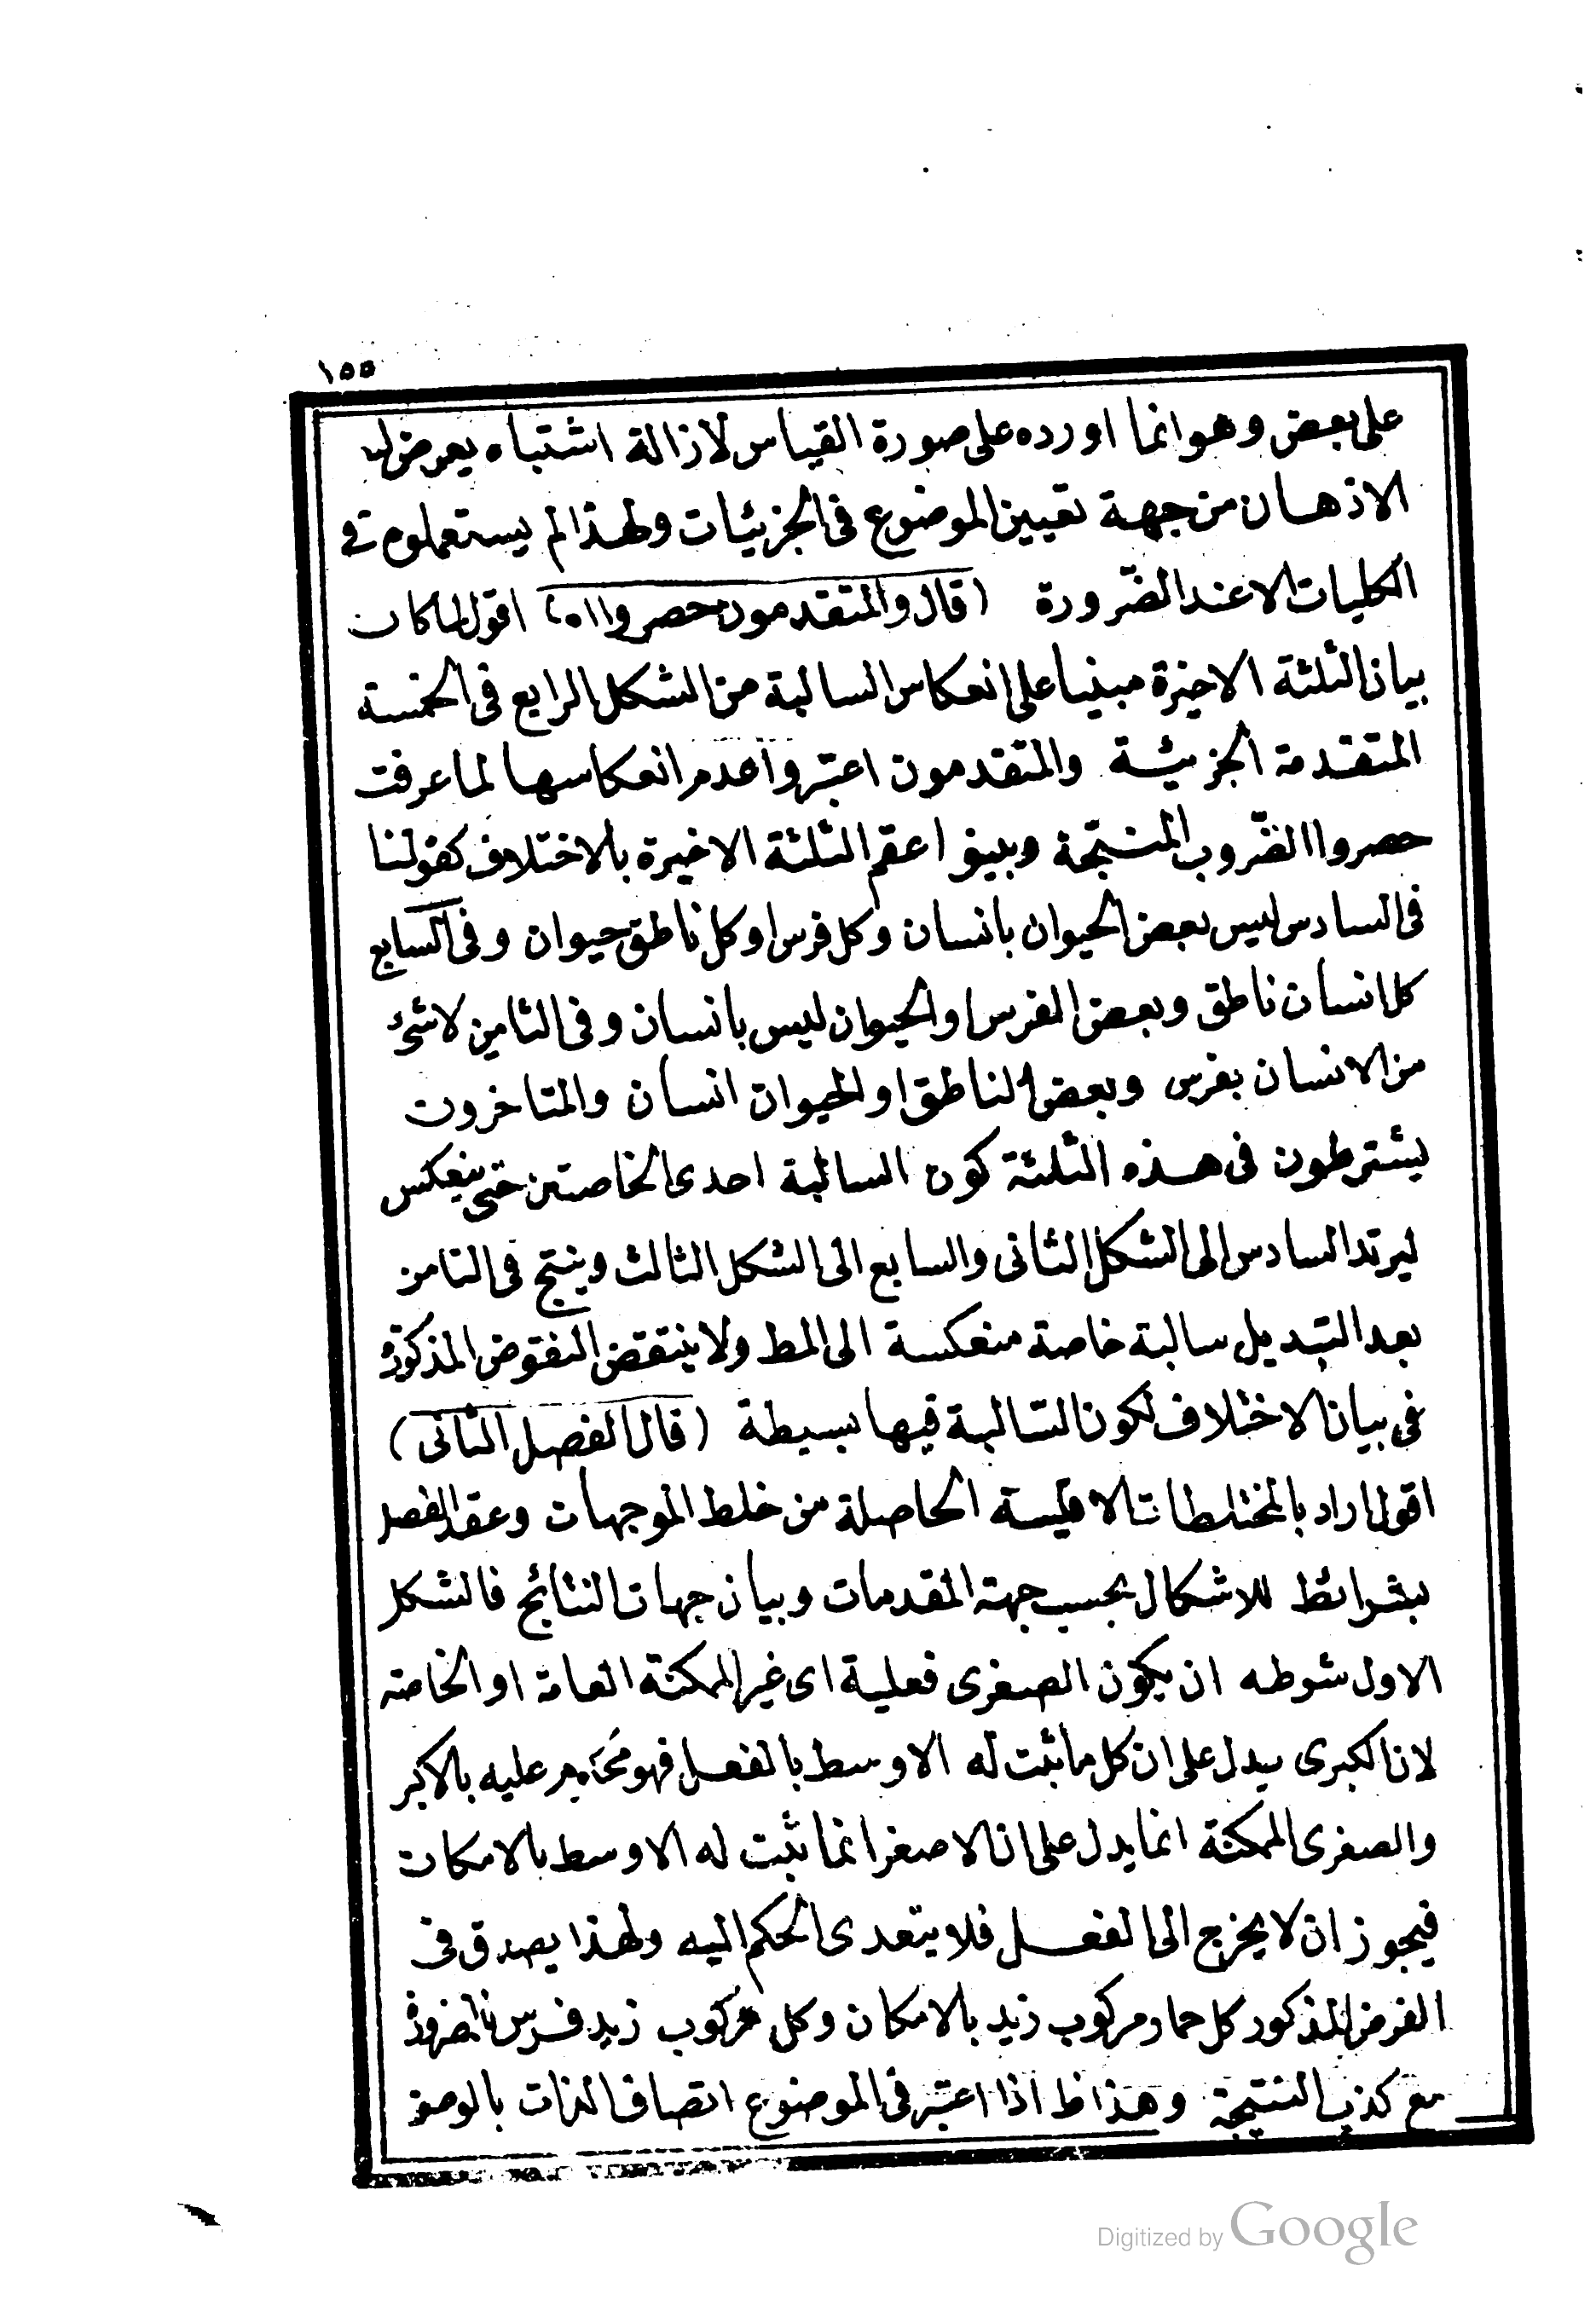 ١٥٥
على بعض وهو انما اورده على صورة القياس لازالة اشتباه يعرض له
الاذهان من جهة تعيين الموضوع فى الجزئيات ولهذا لم يستعملوه فى
الكليات الا عند الضّرورة (قال والمتقدمون حصروا اه) اقول لما كان
بيان الثلثة الاخيرة مبنيا على انعكاس السالبة من الشكل الرابع فى الخمسة
المتقدمة الجزئية والمتقدمون اعتبروا عدم انعكاسها لما عرفت
حصروا الضّروب المنتجة وبينوا عقم الثلثة الاخيرة بالاختلاف كقولنا
فى السادس ليس بعض الحيوان بانسان وكل فرس او كل ناطق حيوان وفى السابع
كل انسان ناطق وبعض الفرس او الحيوان ليس بانسان وفى الثامن لا شئ
من الانسان بفرس وبعض الناطق او الحيوان انسان والمتاخرون
يشترطون فى هذه الثلثة كون السالبة احدى الخاصتين حتى ينعكس
ليرتد السادس الى الشكل الثانى والسابع الى الشكل الثالث وينتج فى الثامن
بعد التبديل سالبة خاصة منعكسة الى المط ولا ينتقض النقوض المذكورة
فى بيان الاختلاف لكون السّالبة فيها بسيطة (قال الفصل الثانى)
اقول اراد بالمختلطات الاقيسة الحاصلة من خلط الموجهات وعقد الفصل
بشرائط للاشكال بحسب جهة المقدمات وبيان جهات النتائج فالشكل
الاول شوطه ان يكون الصغرى فعلية اى غير الممكنة العامة او الخاصة
لان الكبرى يدل على ان كل ما ثبت له الاوسط بالفعل فهو محكوم عليه بالاكبر
والصغرى الممكنة انما يدل على ان الاصغر انما ثبت له الاوسط بالامكان
فيجوز ان لا يخرج الى الفعل فلا يتعدى الحكم اليه ولهذا يصدق فى
الفرض المذكور كل حمار مركوب زيد بالامكان وكل مركوب زيد فرس بالضرورة
مع كذب النتيجة وهذا ظ اذا اعتبر فى الموضوع اتصاف الذات بالوصف
Digitized by Google